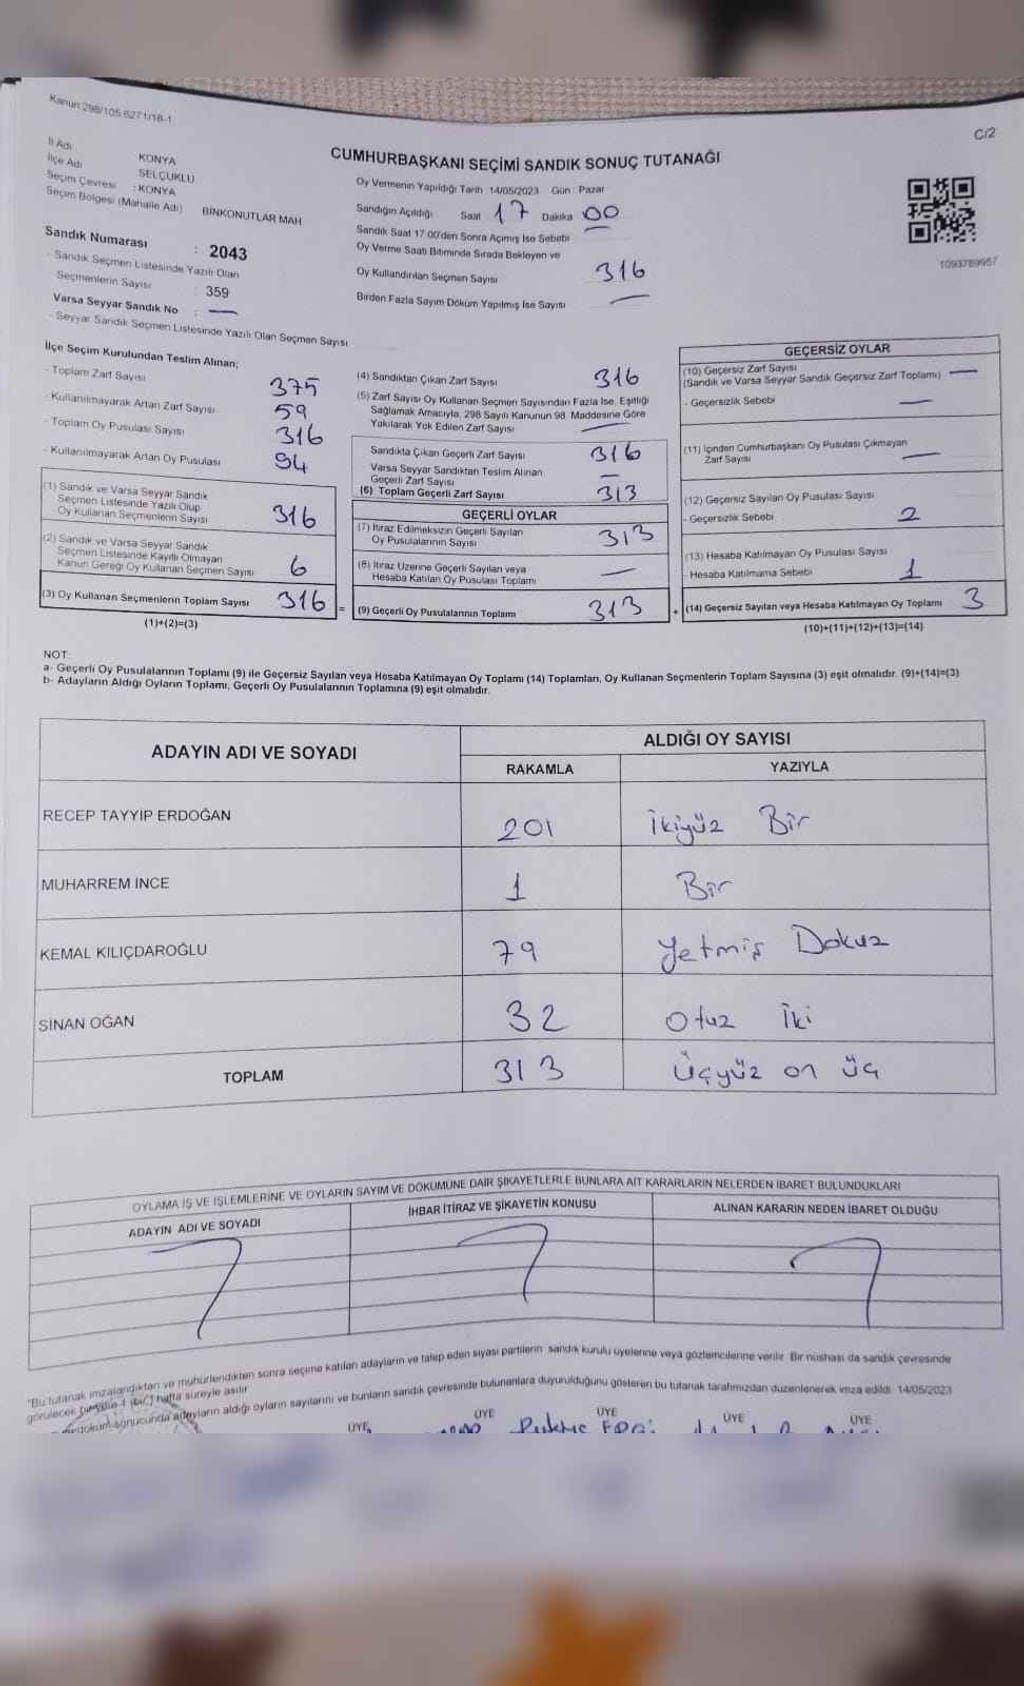 Kanun:298/105.6271/18-1
C/2
İl Adı KONYA
İlçe Adı SELÇUKLU
Seçim Çevresi : KONYA
Seçim Bölgesi (Mahalle Adı) BİNKONUTLAR MAH
Sandık Numarası : 2043
- Sandık Seçmen Listesinde Yazılı Olan
Seçmenlerin Sayısı 359
Varsa Seyyar Sandık No : —
- Seyyar Sandık Seçmen Listesinde Yazılı Olan Seçmen Sayısı
CUMHURBAŞKANI SEÇİMİ SANDIK SONUÇ TUTANAĞI
Oy Vermenin Yapıldığı Tarih 14/05/2023 Gün : Pazar
Sandığın Açıldığı Saat 17 Dakika 00
Sandık Saat 17:00'den Sonra Açılmış İse Sebebi —
Oy Verme Saati Bitiminde Sırada Bekleyen ve
Oy Kullandırılan Seçmen Sayısı 316
Birden Fazla Sayım Döküm Yapılmış İse Sayısı —
1093789957
İlçe Seçim Kurulundan Teslim Alınan;
- Toplam Zarf Sayısı 375
- Kullanılmayarak Artan Zarf Sayısı 59
- Toplam Oy Pusulası Sayısı 316
- Kullanılmayarak Artan Oy Pusulası 94
(1) Sandık ve Varsa Seyyar Sandık
Seçmen Listesinde Yazılı Olup
Oy Kullanan Seçmenlerin Sayısı 316
(2) Sandık ve Varsa Seyyar Sandık
Seçmen Listesinde Kayıtlı Olmayan
Kanun Gereği Oy Kullanan Seçmen Sayısı 6
(3) Oy Kullanan Seçmenlerin Toplam Sayısı 316 =
(1)+(2)=(3)
(4) Sandıktan Çıkan Zarf Sayısı 316
(5) Zarf Sayısı Oy Kullanan Seçmen Sayısından Fazla İse, Eşitliği
Sağlamak Amacıyla, 298 Sayılı Kanunun 98. Maddesine Göre
Yakılarak Yok Edilen Zarf Sayısı —
Sandıkta Çıkan Geçerli Zarf Sayısı 316
Varsa Seyyar Sandıktan Teslim Alınan
Geçerli Zarf Sayısı —
(6) Toplam Geçerli Zarf Sayısı 313
GEÇERLİ OYLAR
(7) İtiraz Edilmeksizin Geçerli Sayılan
Oy Pusulalarının Sayısı 313
(8) İtiraz Üzerine Geçerli Sayılan veya
Hesaba Katılan Oy Pusulası Toplamı —
(9) Geçerli Oy Pusulalarının Toplamı 313 +
GEÇERSİZ OYLAR
(10) Geçersiz Zarf Sayısı
(Sandık ve Varsa Seyyar Sandık Geçersiz Zarf Toplamı) —
- Geçersizlik Sebebi —
(11) İçinden Cumhurbaşkanı Oy Pusulası Çıkmayan
Zarf Sayısı —
(12) Geçersiz Sayılan Oy Pusulası Sayısı
- Geçersizlik Sebebi 2
(13) Hesaba Katılmayan Oy Pusulası Sayısı
- Hesaba Katılmama Sebebi 1
(14) Geçersiz Sayılan veya Hesaba Katılmayan Oy Toplamı 3
(10)+(11)+(12)+(13)=(14)
NOT:
a- Geçerli Oy Pusulalarının Toplamı (9) ile Geçersiz Sayılan veya Hesaba Katılmayan Oy Toplamı (14) Toplamları, Oy Kullanan Seçmenlerin Toplam Sayısına (3) eşit olmalıdır. (9)+(14)=(3)
b- Adayların Aldığı Oyların Toplamı, Geçerli Oy Pusulalarının Toplamına (9) eşit olmalıdır.
ADAYIN ADI VE SOYADI ALDIĞI OY SAYISI
RAKAMLA YAZIYLA
RECEP TAYYIP ERDOĞAN 201 İkiyüz Bir
MUHARREM İNCE 1 Bir
KEMAL KILIÇDAROĞLU 79 Yetmiş Dokuz
SİNAN OĞAN 32 Otuz İki
TOPLAM 313 Üçyüz on üç
OYLAMA İŞ VE İŞLEMLERİNE VE OYLARIN SAYIM VE DÖKÜMÜNE DAİR ŞİKAYETLERLE BUNLARA AİT KARARLARIN NELERDEN İBARET BULUNDUKLARI
ADAYIN ADI VE SOYADI İHBAR İTİRAZ VE ŞİKAYETİN KONUSU ALINAN KARARIN NEDEN İBARET OLDUĞU
"Bu tutanak imzalandıktan ve mühürlendikten sonra seçime katılan adayların ve talep eden siyasi partilerin sandık kurulu üyelerine veya gözlemcilerine verilir. Bir nüshası da sandık çevresinde
görülecek bir yere 1 (bir) hafta süreyle asılır.
döküm sonucunda adayların aldığı oyların sayılarını ve bunların sandık çevresinde bulunanlara duyurulduğunu gösteren bu tutanak tarafımızdan düzenlenerek imza edildi. 14/05/2023
ÜYE ÜYE ÜYE ÜYE ÜYE